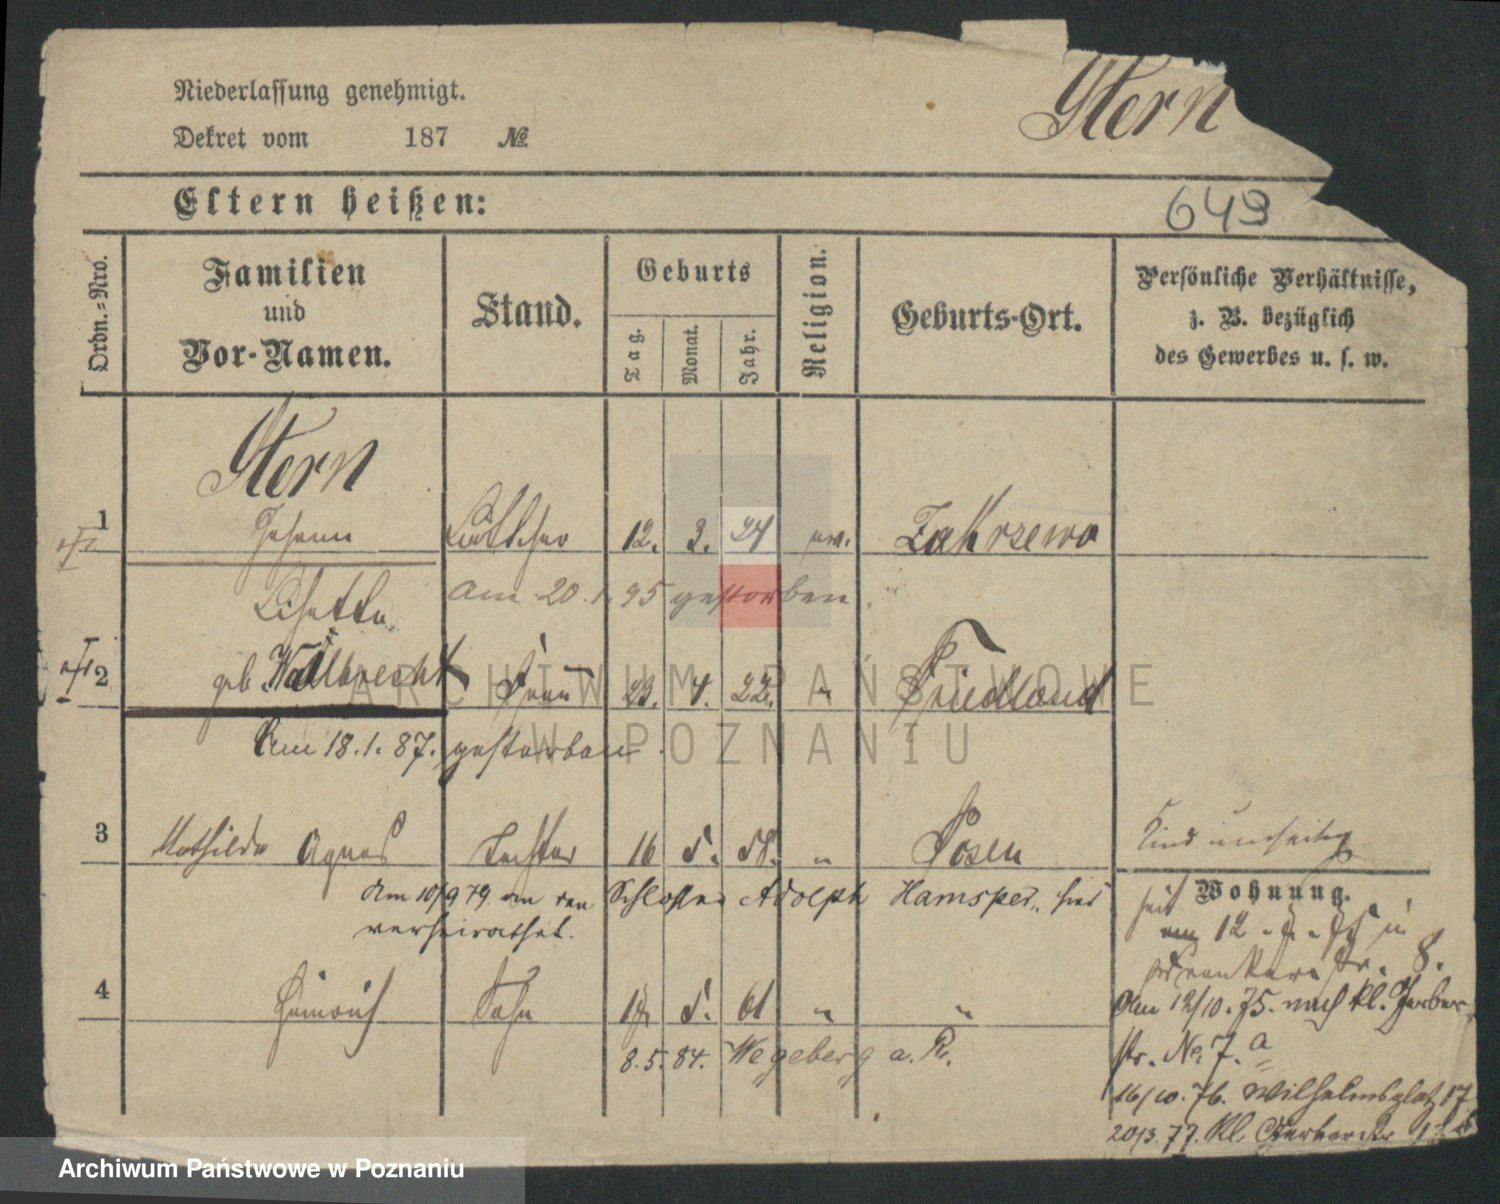 Niederlassung genehmigt.
Stern
Dekret vom 187 №
Eltern heißen:
649
Ordn.-Nro.
Familien
und
Vor-Namen.
Stand.
Geburts
Tag.
Monat.
Jahr.
Religion.
Geburts-Ort.
Persönliche Verhältnisse,
z. B. bezüglich
des Gewerbes u. s. w.
Stern
1 Johann 12. 3. 24 ev. Zakrzewo
am 20.1.95 gestorben.
Lisette
2 geb. Wallbrecht Frau 23. 4. 22. " Friedland
Am 18.1.87. gestorben.
3 Mathilde Agnes Tochter 16 5. 58. " Posen
Kind umseitig
Am 10/9 79 an den Schlosser Adolph Hamsper hier
verheirathet.
Wohnung.
seit
12 - 7 - 75 in
str. 8.
4 Heinrich Sohn 5. 61 " "
Am 12/10.75. nach kl. Gerber
str. No. 7. a
8.5.84. Wegeberg a. R.
16/10.76. Wilhelmsplatz 17
20/3.77. kl. Gerberstr
ARCHIWUM PAŃSTWOWE
W POZNANIU
Archiwum Państwowe w Poznaniu